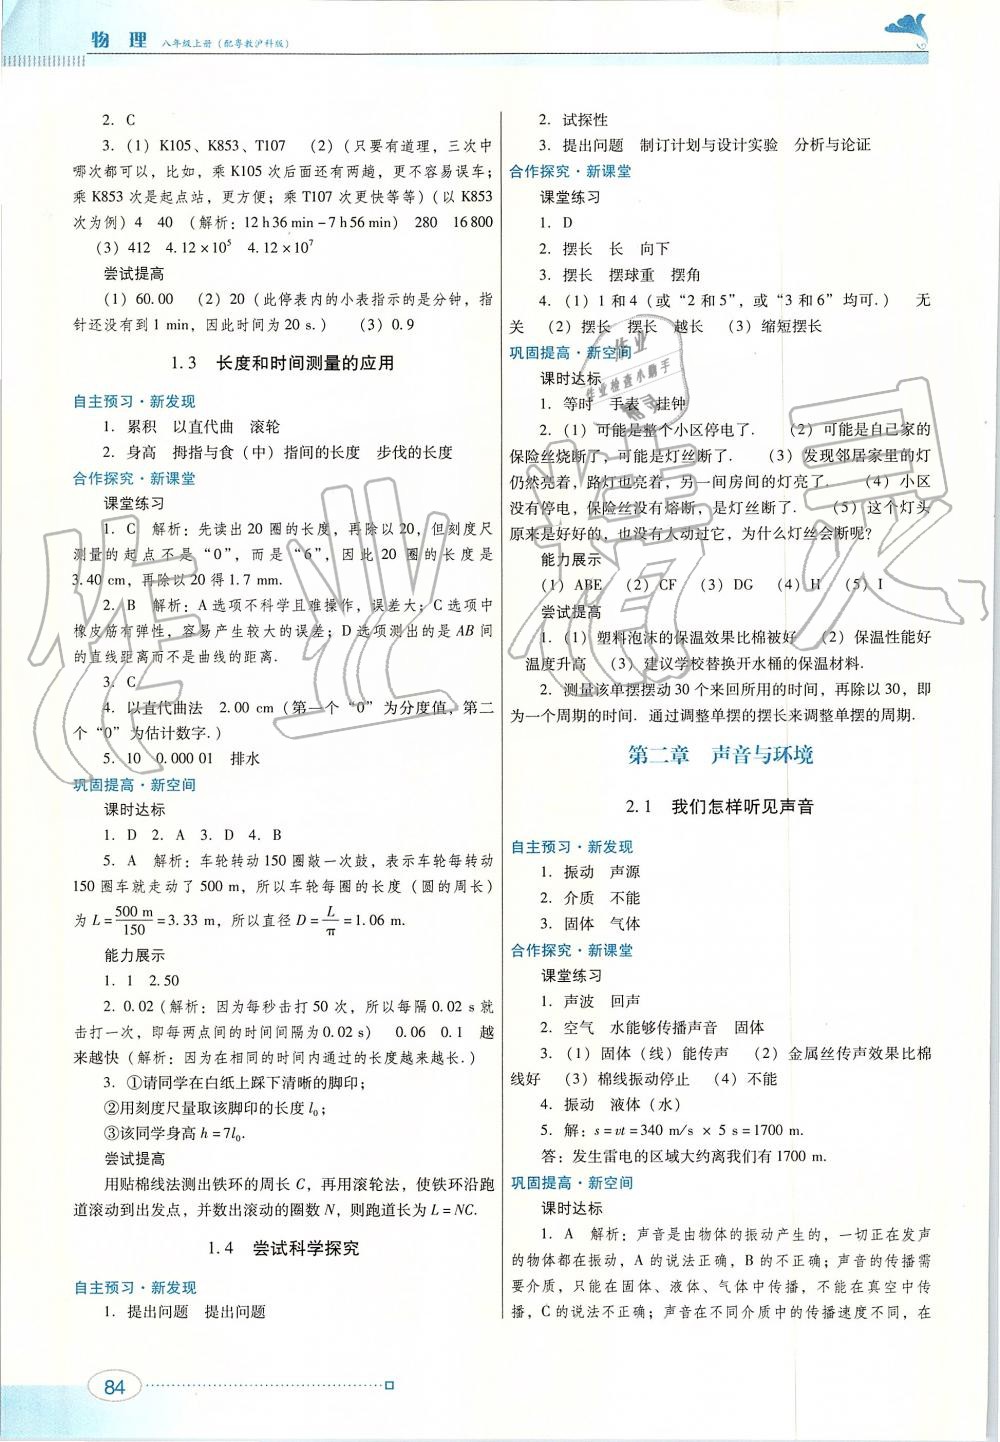 物 理 八年级上册（配粤教沪科版）
2. C
3. (1) K105、K853、T107 (2)（只要有道理，三次中
哪次都可以，比如，乘 K105 次后面还有两趟，更不容易误车；
乘 K853 次是起点站，更方便；乘 T107 次更快等等）（以 K853
次为例）4 40（解析：12 h 36 min－7 h 56 min） 280 16 800
(3) 412 4.12×10⁵ 4.12×10⁷
尝试提高
(1) 60.00 (2) 20（此停表内的小表指示的是分钟，指
针还没有到 1 min，因此时间为 20 s.） (3) 0.9
1.3 长度和时间测量的应用
自主预习·新发现
1. 累积 以直代曲 滚轮
2. 身高 拇指与食（中）指间的长度 步伐的长度
合作探究·新课堂
课堂练习
1. C 解析：先读出 20 圈的长度，再除以 20，但刻度尺
测量的起点不是“0”，而是“6”，因此 20 圈的长度是
3.40 cm，再除以 20 得 1.7 mm.
2. B 解析：A 选项不科学且难操作，误差大；C 选项中
橡皮筋有弹性，容易产生较大的误差；D 选项测出的是 AB 间
的直线距离而不是曲线的距离.
3. C
4. 以直代曲法 2.00 cm（第一个“0”为分度值，第二
个“0”为估计数字.）
5. 10 0.000 01 排水
巩固提高·新空间
课时达标
1. D 2. A 3. D 4. B
5. A 解析：车轮转动 150 圈敲一次鼓，表示车轮每转动
150 圈车就走动了 500 m，所以车轮每圈的长度（圆的周长）
为 L=500 m/150=3.33 m，所以直径 D=L/π=1.06 m.
能力展示
1. 1 2.50
2. 0.02（解析：因为每秒击打 50 次，所以每隔 0.02 s 就
击打一次，即每两点间的时间间隔为 0.02 s） 0.06 0.1 越
来越快（解析：因为在相同的时间内通过的长度越来越长.）
3. ①请同学在白纸上踩下清晰的脚印；
②用刻度尺量取该脚印的长度 l₀；
③该同学身高 h=7l₀.
尝试提高
用贴棉线法测出铁环的周长 C，再用滚轮法，使铁环沿跑
道滚动到出发点，并数出滚动的圈数 N，则跑道长为 L=NC.
1.4 尝试科学探究
自主预习·新发现
1. 提出问题 提出问题
2. 试探性
3. 提出问题 制订计划与设计实验 分析与论证
合作探究·新课堂
课堂练习
1. D
2. 摆长 长 向下
3. 摆长 摆球重 摆角
4. (1) 1 和 4（或“2 和 5”，或“3 和 6”均可.） 无
关 (2) 摆长 摆长 越长 (3) 缩短摆长
巩固提高·新空间
课时达标
1. 等时 手表 挂钟
2. (1) 可能是整个小区停电了. (2) 可能是自己家的
保险丝烧断了，可能是灯丝断了. (3) 发现邻居家里的灯
仍然亮着，路灯也亮着，另一间房间的灯亮了. (4) 小区
没有停电，保险丝没有熔断，是灯丝断了. (5) 这个灯头
原来是好好的，也没有大动过它，为什么灯丝会断呢？
能力展示
(1) ABE (2) CF (3) DG (4) H (5) I
尝试提高
1. (1) 塑料泡沫的保温效果比棉被好 (2) 保温性能好
温度升高 (3) 建议学校替换开水桶的保温材料.
2. 测量该单摆摆动 30 个来回所用的时间，再除以 30，即
为一个周期的时间. 通过调整单摆的摆长来调整单摆的周期.
第二章 声音与环境
2.1 我们怎样听见声音
自主预习·新发现
1. 振动 声源
2. 介质 不能
3. 固体 气体
合作探究·新课堂
课堂练习
1. 声波 回声
2. 空气 水能够传播声音 固体
3. (1) 固体（线）能传声 (2) 金属丝传声效果比棉
线好 (3) 棉线振动停止 (4) 不能
4. 振动 液体（水）
5. 解：s=vt=340 m/s × 5 s=1700 m.
答：发生雷电的区域大约离我们有 1700 m.
巩固提高·新空间
课时达标
1. A 解析：声音是由物体的振动产生的，一切正在发声
的物体都在振动，A 的说法正确，B 的不正确；声音的传播需
要介质，只能在固体、液体、气体中传播，不能在真空中传
播，C 的说法不正确；声音在不同介质中的传播速度不同，在
84
作业精灵
作业
作业检查小助手